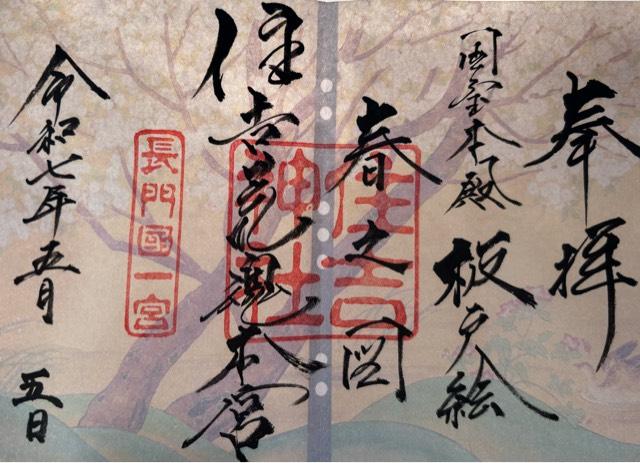 奉拝
国宝本殿 板戸絵
春之図
住吉神社
住吉荒魂本宮
長門國一宮
令和七年五月五日